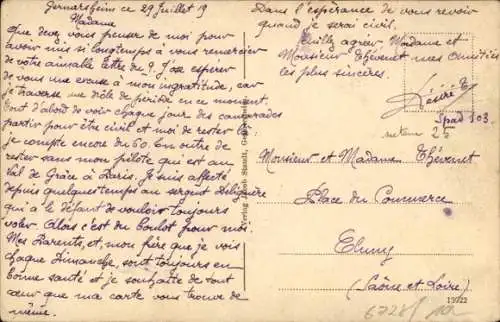 Germersheim ce 29 Juillet 19
Madame
Que devez vous penser de moi pour
avoir mis si longtemps à vous remercier
de votre aimable lettre du 9. J'ose espérer
de vous une excuse à mon ingratitude, car
je traverse une drôle de période en ce moment.
Tout d'abord de voir chaque jour des camarades
partir pour être civil et moi de rester là.
je compte encore du 60. En outre de
rester sans mon pilote qui est au
Val de Grâce à Paris. Je suis affecté
depuis quelques temps au sergent
qui a le défaut de vouloir toujours
voler. Alors c'est du boulot pour moi.
Mes Parents, et, mon frère que je vois
chaque Dimanche, sont toujours en
bonne santé et je souhaite de tout
cœur que ma carte vous trouve de
même.
Dans l'espérance de vous revoir
quand je serai civil.
Veuillez agréer Madame et
Monsieur Thévenet mes amitiés
les plus sincères.
Désiré
Spad 103.
Verlag Jacob Stadl, Germersheim
Monsieur et Madame Thévenet
Place du Commerce
Cluny
(Saône et Loire)
13922